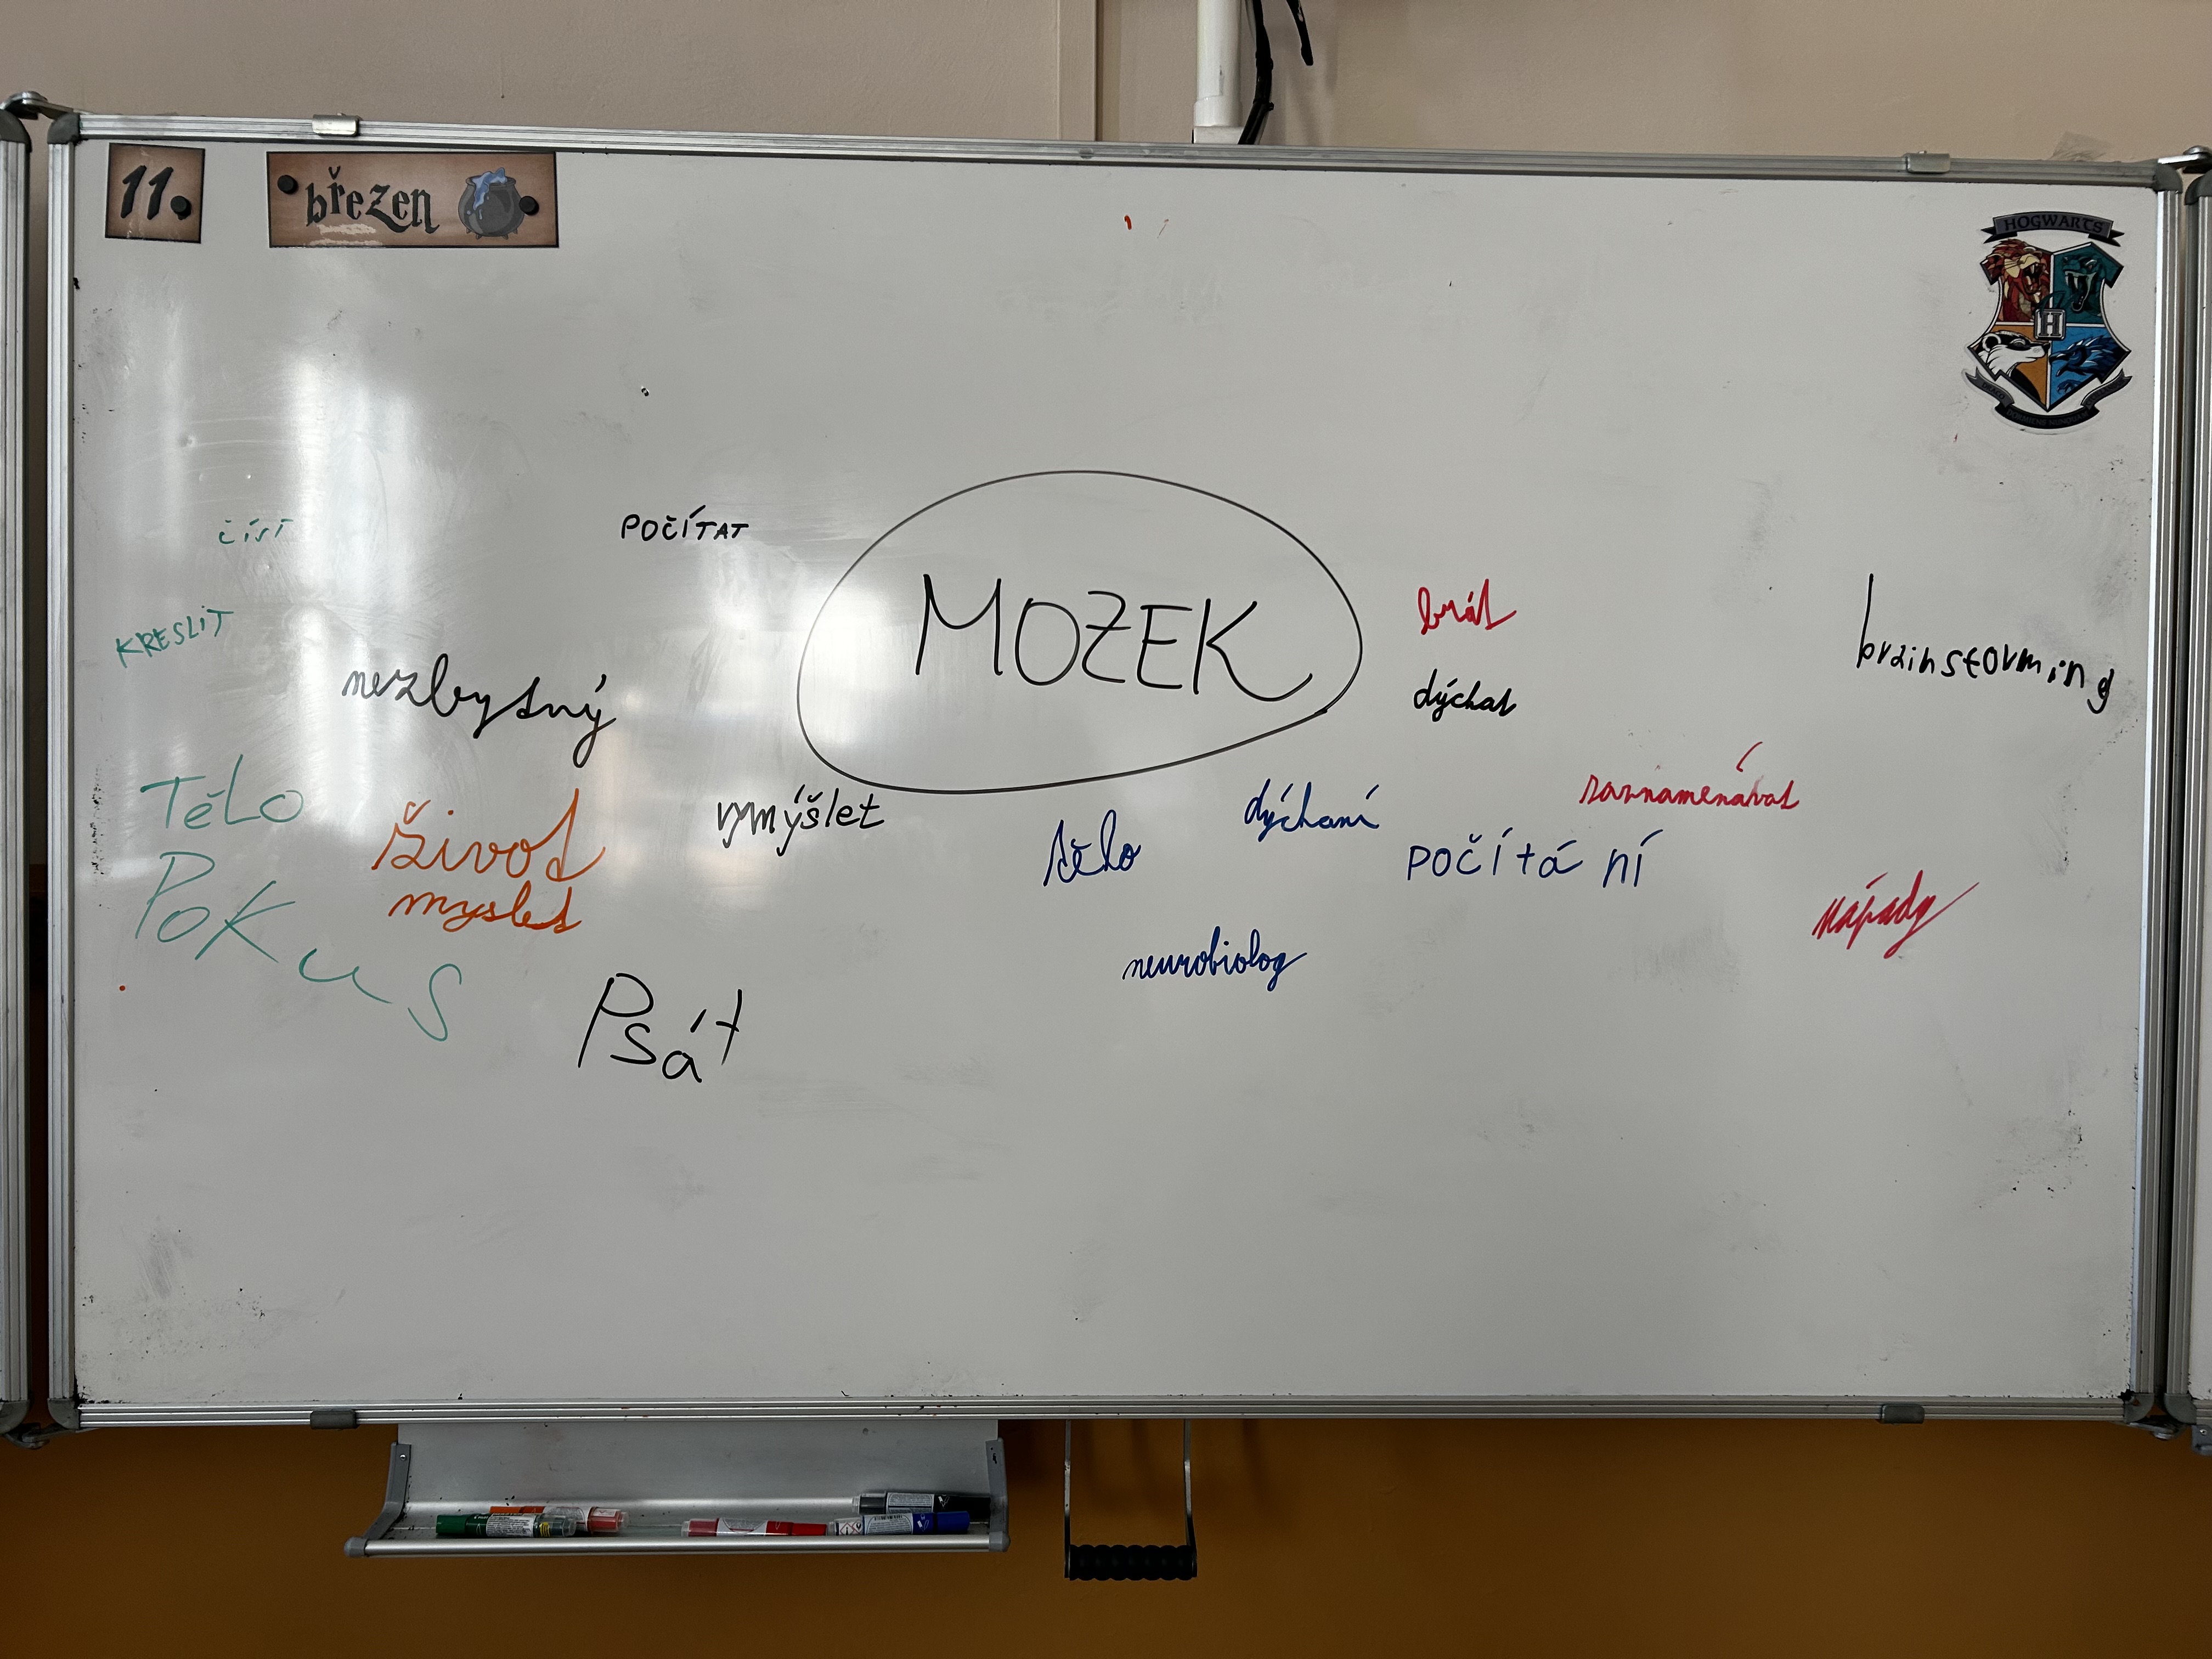 11.
březen
HOGWARTS
H
číst
POČÍTAT
MOZEK
brát
KRESLIT
nezbytný
dýchat
brainstorming
Tělo
život
vymýšlet
tělo
dýchaní
zaznamenávat
počítá ní
myslet
Pokus
nápady
neurobiolog
Psát